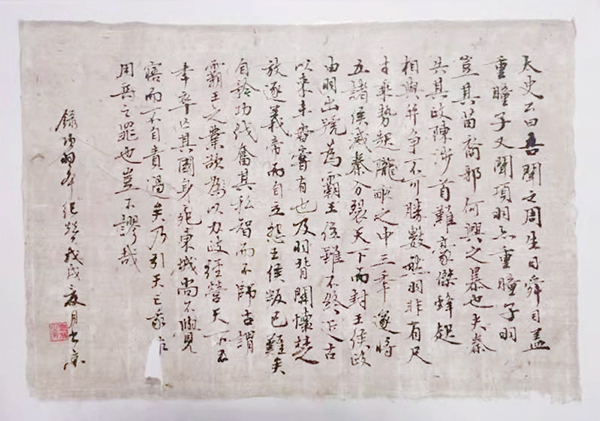 太史公曰吾聞之周生曰舜目蓋
重瞳子又聞項羽亦重瞳子羽
豈其苗裔邪何興之暴也夫秦
失其政陳涉首難豪傑蜂起
相與并爭不可勝數然羽非有尺
寸乘勢起隴畝之中三年遂將
五諸侯滅秦分裂天下而封王侯政
由羽出號為霸王位雖不終近古
以來未嘗有也及羽背關懷楚
放逐義帝而自立怨王侯叛己難矣
自矜功伐奮其私智而不師古謂
霸王之業欲以力政經營天下五
年卒亡其國身死東城尚不覺
寤而不自責過矣乃引天亡我非
用兵之罪也豈不謬哉
錄項羽本紀贊戊戌夏月